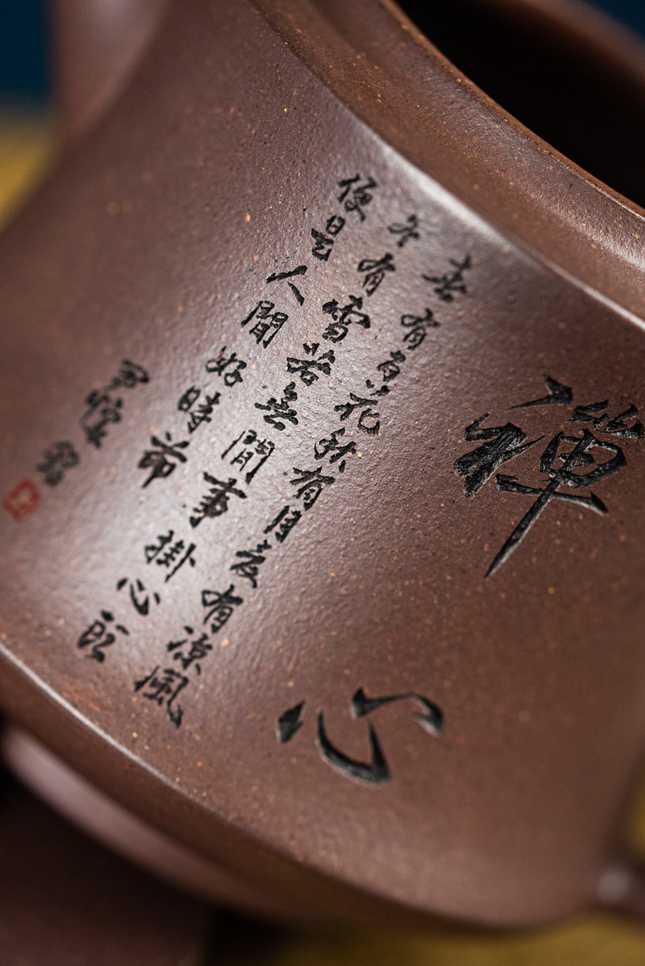 禪心
春有百花秋有月夏有涼風
冬有雪若無間事掛心頭
便是人間好時節